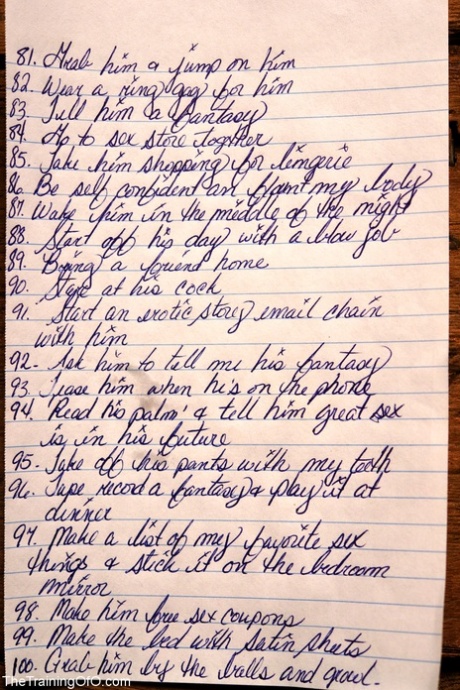 81. Grab him & jump on him
82. Wear a ring gag for him
83. Tell him a fantasy
84. Go to sex store together
85. Take him shopping for lingerie
86 Be self confident an flaunt my body
87. Wake him in the middle of the night
88. Start off his day with a blow job
89. Bring a friend home
90. Stare at his cock
91. Start an erotic story email chain
with him
92. Ask him to tell me his fantasy
93. Tease him when he's on the phone
94. Read his palm' & tell him great sex
is in his future
95. Take off his pants with my teeth
96. Tape record a fantasy & play it at
dinner
97. Make a list of my favorite sex
things & stick it on the bedroom
mirror
98. Make him free sex coupons
99. Make the bed with satin sheets
100. Grab him by the balls and growl.
TheTrainingOfO.com